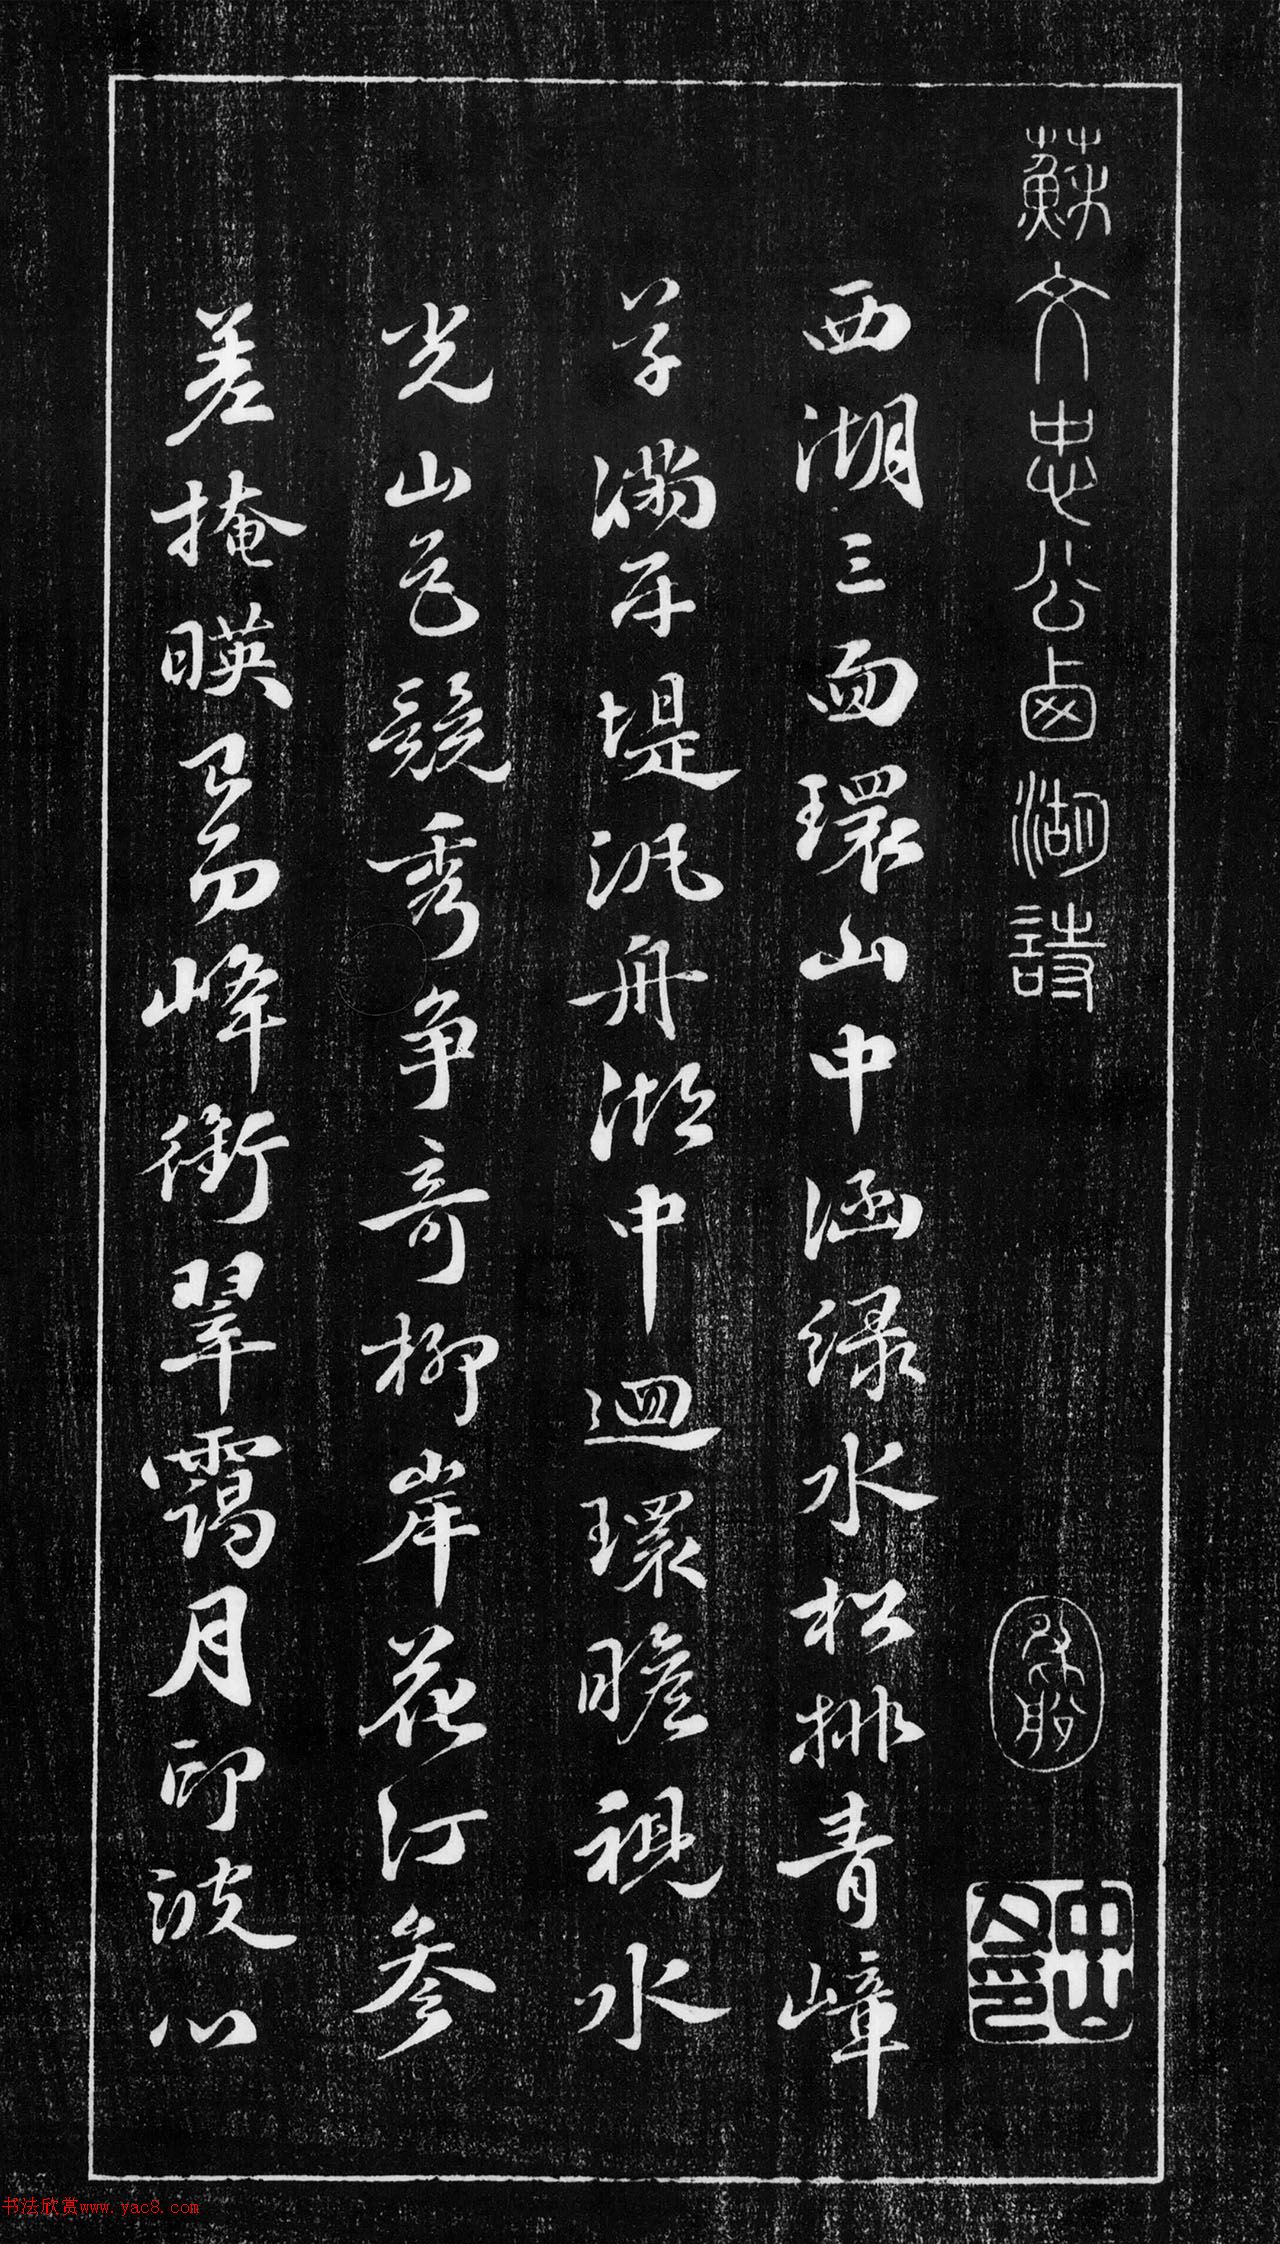 蘇文忠公西湖詩
西湖三面環山中涵綠水松排青嶂
草滿平堤汎舟湖中迴環瞻視水
光山色競秀爭奇柳岸花汀參
差掩暎至若峰銜翠靄月印波心
书法欣赏www.yac8.com